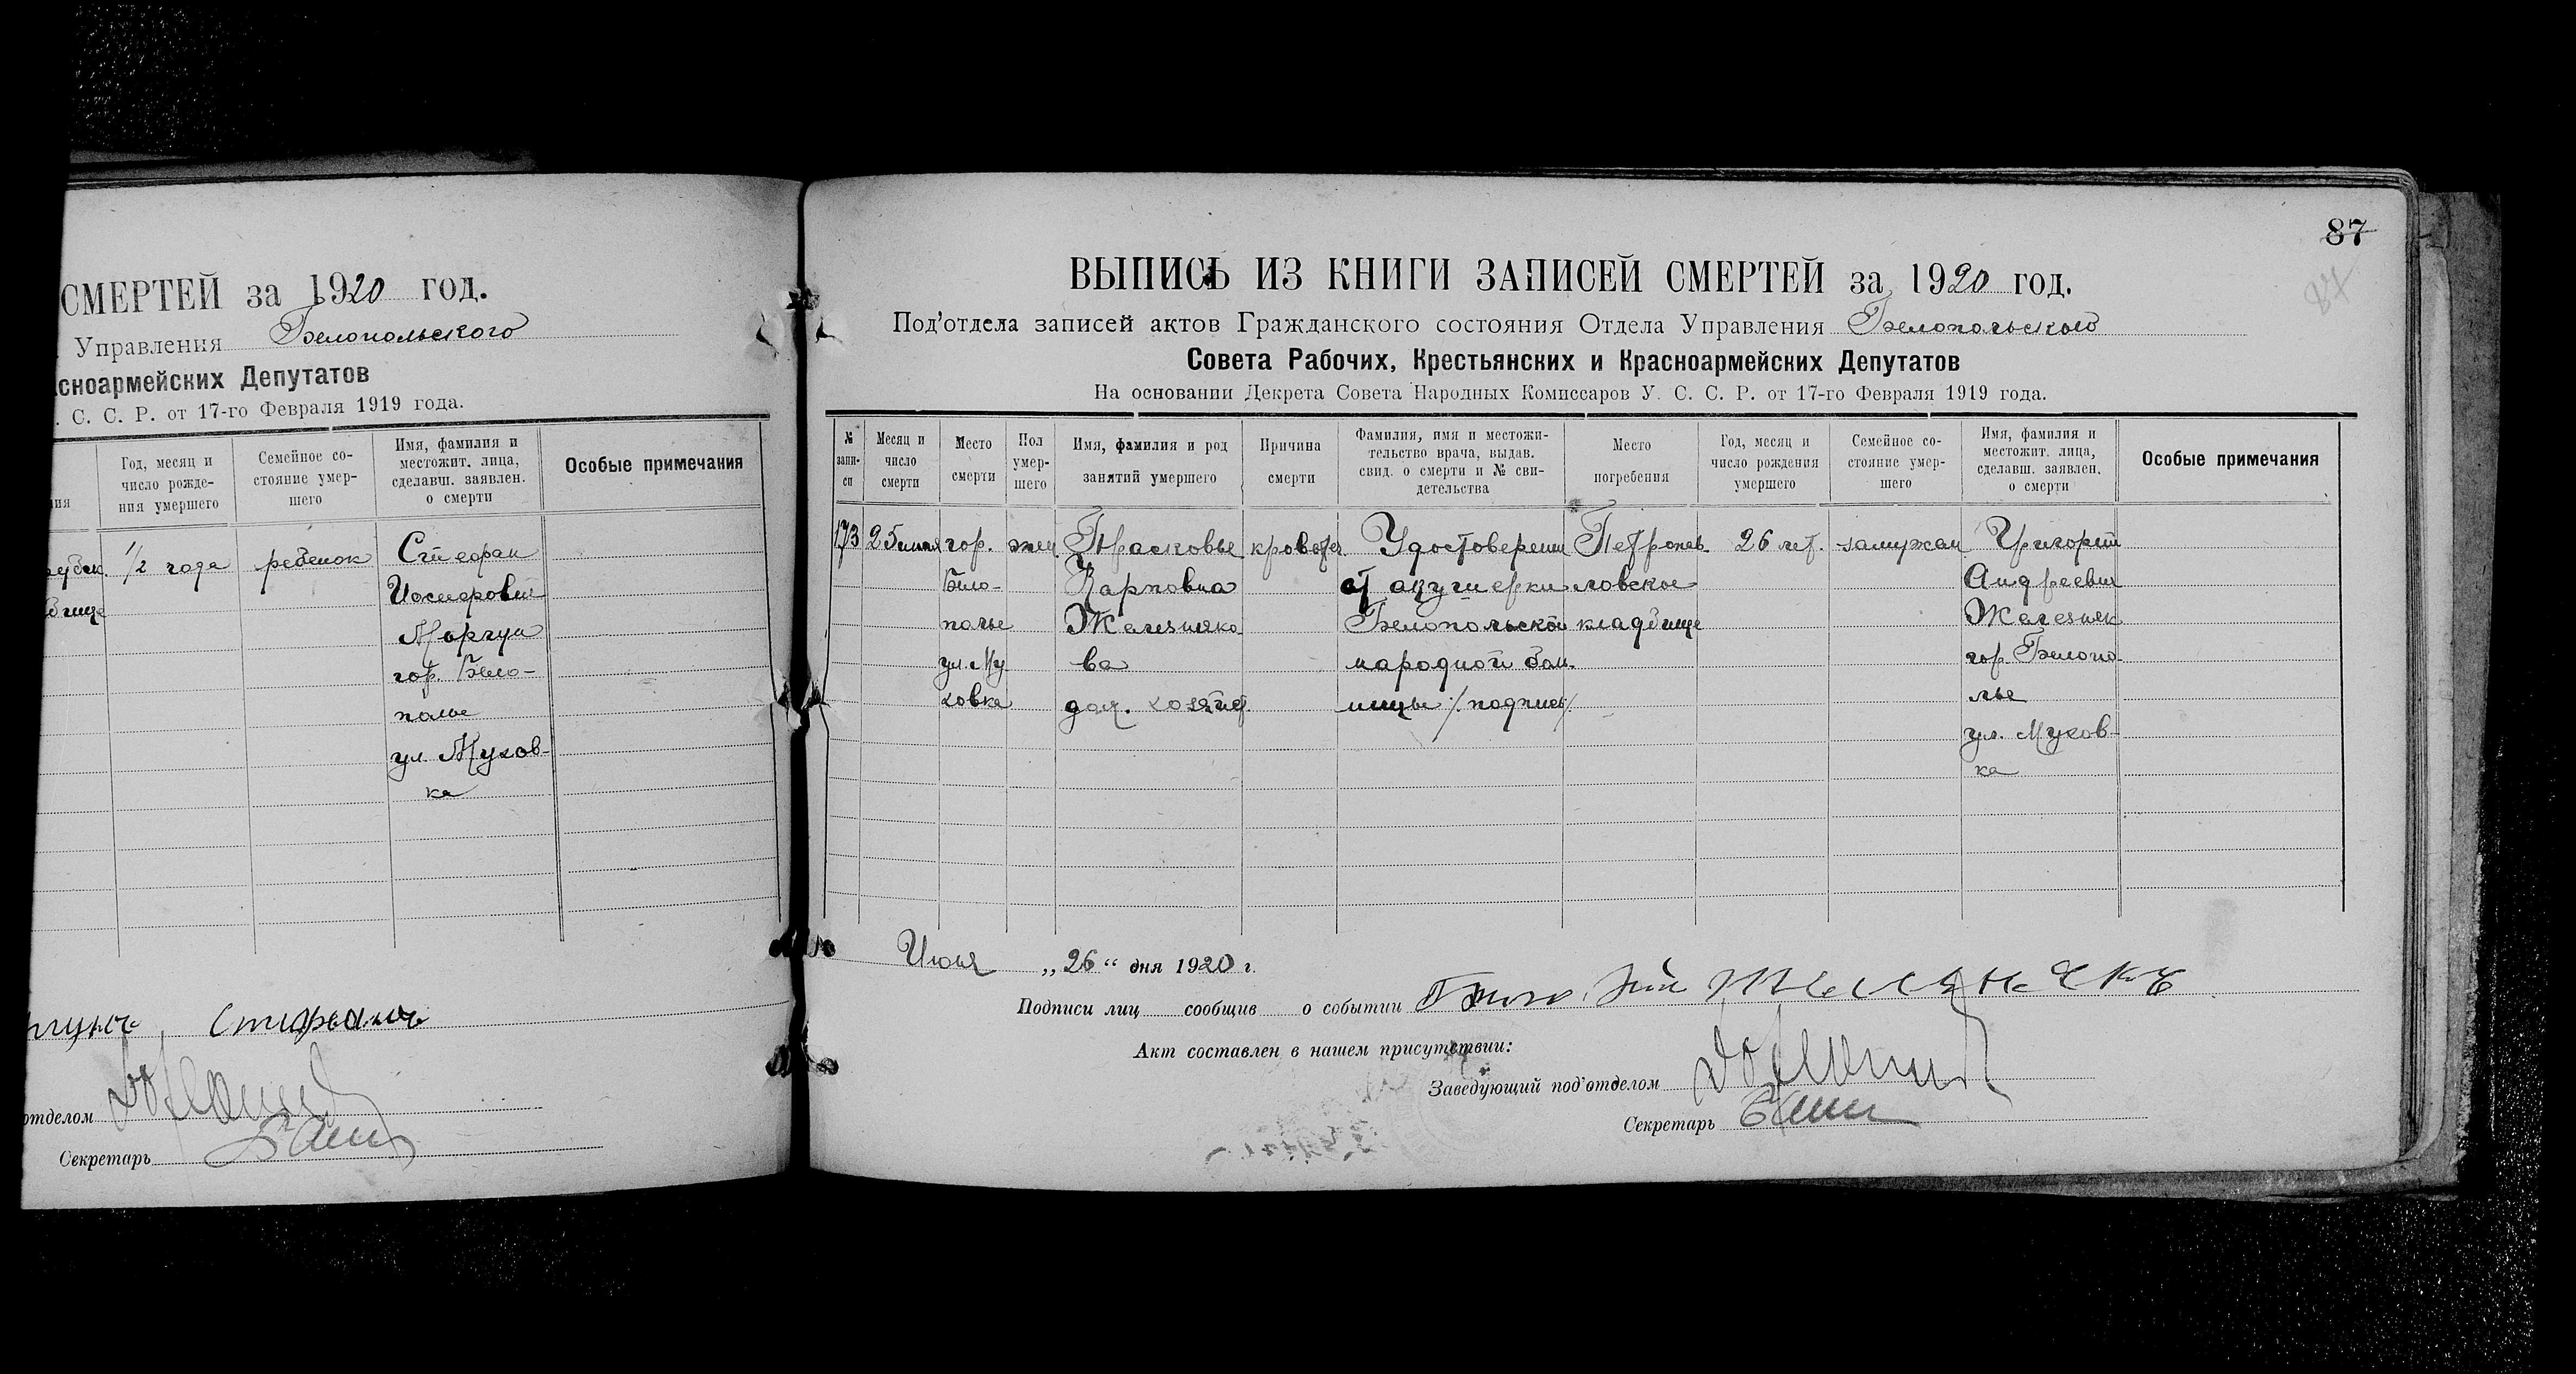 СМЕРТЕЙ за 1920 год.
Управления Белопольского
сноармейских Депутатов
. С. С. Р. от 17-го Февраля 1919 года.
ния
Год, месяц и число рожде- ния умершего
Семейное со- стояние умер- шего
Имя, фамилия и местожит. лица, сделавш. заявлен. о смерти
Особые примечания
1/2 года ребенок Стефан
Иосифович
Моргун
гор. Бело-
полье
ул. Мухов-
ка
Стефанъ
отделом
Секретарь
87
87
ВЫПИСЬ ИЗ КНИГИ ЗАПИСЕЙ СМЕРТЕЙ за 1920 год.
Под’отдела записей актов Гражданского состояния Отдела Управления Белопольского
Совета Рабочих, Крестьянских и Красноармейских Депутатов
На основании Декрета Совета Народных Комиссаров У. С. С. Р. от 17-го Февраля 1919 года.
№ запи- си
Месяц и число смерти
Место смерти
Пол умер- шего
Имя, фамилия и род занятий умершего
Причина смерти
Фамилия, имя и местожи- тельство врача, выдав. свид. о смерти и № сви- детельства
Место погребения
Год, месяц и число рождения умершего
Семейное со- стояние умер- шего
Имя, фамилия и местожит. лица, сделавш. заявлен. о смерти
Особые примечания
173 25 июня гор. жен Прасковья Удостоверени Петропав 26 лет. замужем Григорий
Бело- Карповна от акушерки ловское Андреевич
полье Железняко Белопольской кладбище Железняк
ул. Му ва народной бол. гор. Белопо
ховка дом. хозяйст ницы /подпись/ лье
ул. Мухов-
ка
Июня „26“ дня 1920 г.
Подписи лиц сообщив о событии
Акт составлен в нашем присутствии:
Заведующий под’отделом
Секретарь